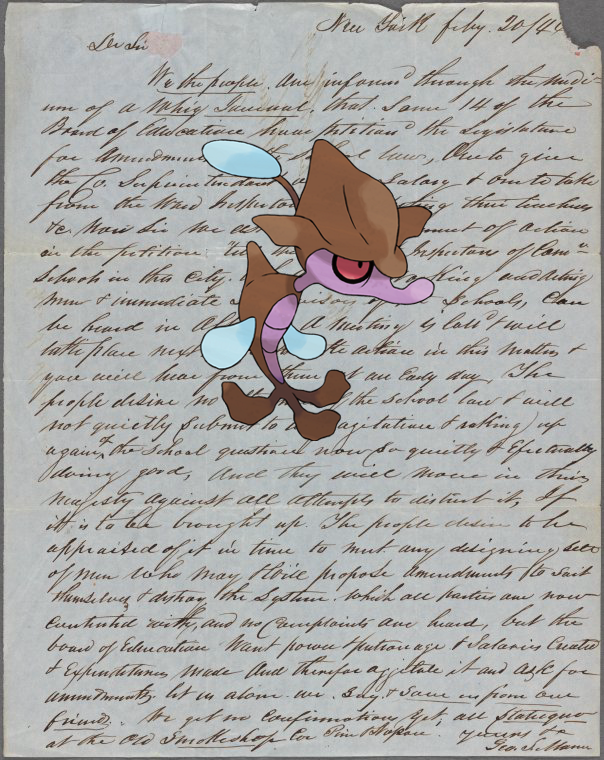 New York feby. 20/46
Dr Sir
We the people, are informd through the medi-
um of a Whig Journal, that some 14 of the
Board of Education have petitiond the Legislature
for Amendment the School law, One to give
the Co. Superintendant Salary & one to take
from the Ward their teachers
&c. Now Sir We of action
in the petition Inspectors of Comn
Schools in this city, and acting
men & immediate of Schools, Can
be heard in A meeting is & will
take place next action in this matter &
you will hear from them at an Early day. The
people desire the school law & will
not quietly submit to agitation & raking up
again the school question now so quietly & Efectually
doing good, And they will move in their
majesty against all attempts to disturb it, If
it is to be brought up. The people desire to be
appraised of it in time to meet any designing sett
of men who may propose Amendments to suit
themselves & distroy the System. which all parties are now
contented with, and no Complaints are heard, but the
board of Education Want power & patronage & Salaries Created
& Expenditures made And therefore agitate it and ask for
amendments. let us alone we say & save us from our
friends. We get no Confirmation yet, all Statuquo
at the Old Smokeshop Cor Pine & Nassau. yours &c
Geo. S. Mann